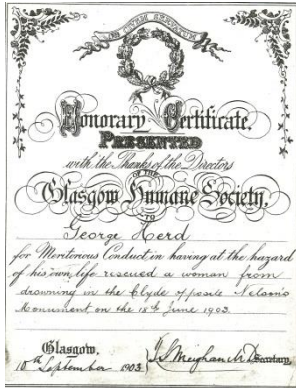 Honorary Certificate.
PRESENTED
with the Thanks of the Directors
OF THE
Glasgow Humane Society,
TO
George Herd
for Meritorious Conduct in having at the hazard
of his own life rescued a woman from
drowning in the Clyde opposite Nelson's
Monument on the 18th June 1903.
Glasgow,
10th September 1903.
Secretary